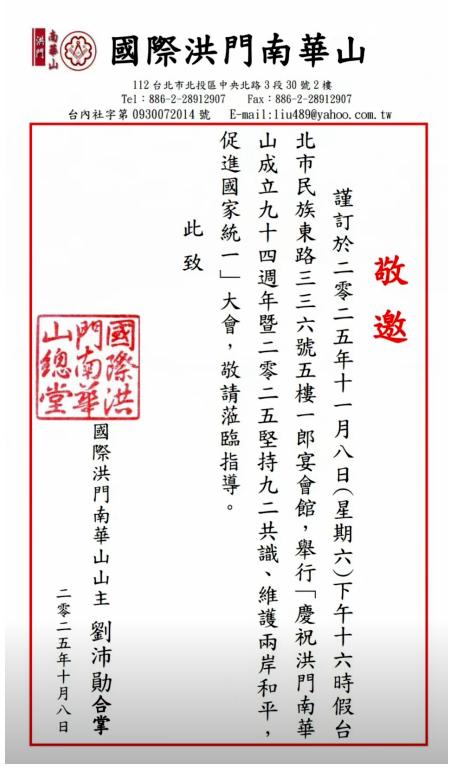 洪門
南華山
國際洪門南華山
112台北市北投區中央北路3段30號2樓
Tel：886-2-28912907 Fax：886-2-28912907
台內社字第0930072014號 E-mail:liu489@yahoo.com.tw
敬邀
謹訂於二零二五年十一月八日(星期六)下午十六時假台
北市民族東路三三六號五樓一郎宴會館，舉行「慶祝洪門南華
山成立九十四週年暨二零二五堅持九二共識、維護兩岸和平，
促進國家統一」大會，敬請蒞臨指導。
此致
國際洪
門南華
山總堂
國際洪門南華山山主 劉沛勛合掌
二零二五年十月八日